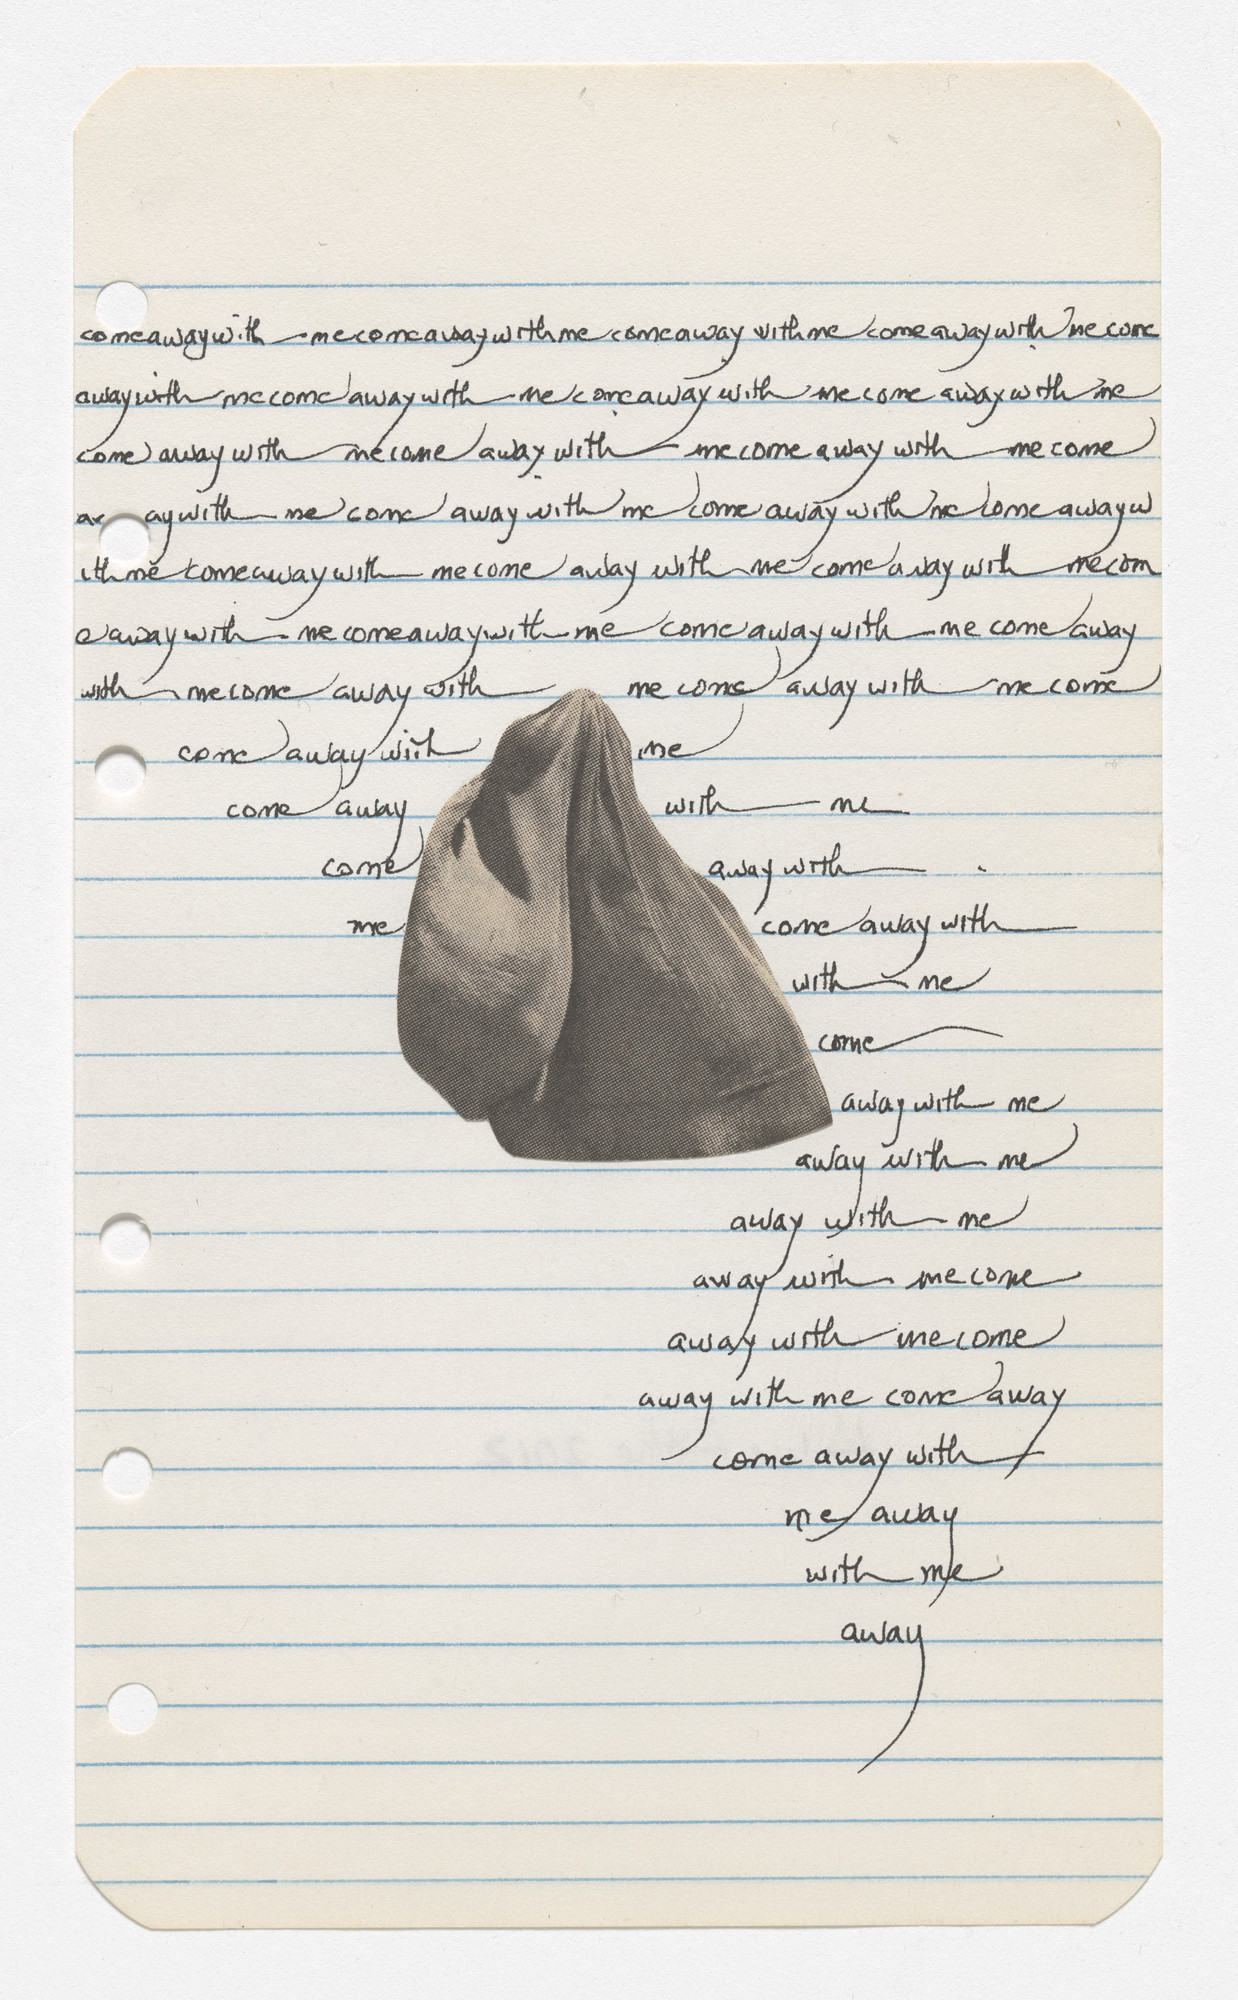 comeawaywith me comeawaywithme comeaway withme comeawaywith me come
awaywith me come away with me comeaway with me come away with me
come away with me come away with me come away with me come
aw ay with me come away with me come away with me come away w
ith me comeaway with me come away with me come away with me com
e away with me comeaway with me come away with me come away
with me come away with me come away with me come
come away with me
come away with me
come away with
me come away with
with me
come
away with me
away with me
away with me
away with me come
away with me come
away with me come away
come away with
me away
with me
away